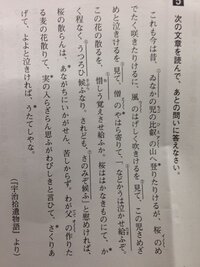 5 次の文章を読んで、あとの問いに答えなさい。
これも今は昔、ゐなかの児の比叡の山へ登りたりけるが、桜のめ
でたく咲きたりけるに、風のはげしく吹きけるを見て、この児さめざ
めと泣きけるを見て、僧のやはら寄りて、「などかうは泣かせ給ふぞ。
この花の散るを、惜しう覚えさせ給ふか。桜ははかなきものにて、か
く程なくうつろひ候ふなり。されども、さのみぞ候ふ」と慰めければ、
「桜の散らんは、あながちにいかがせん、苦しからず。わが父の作りた
る麦の花散りて、実の入らざらん思ふがわびしき」と言ひて、さくりあ
げて、よよと泣きければ、うたてしやな。
(『宇治拾遺物語』より)